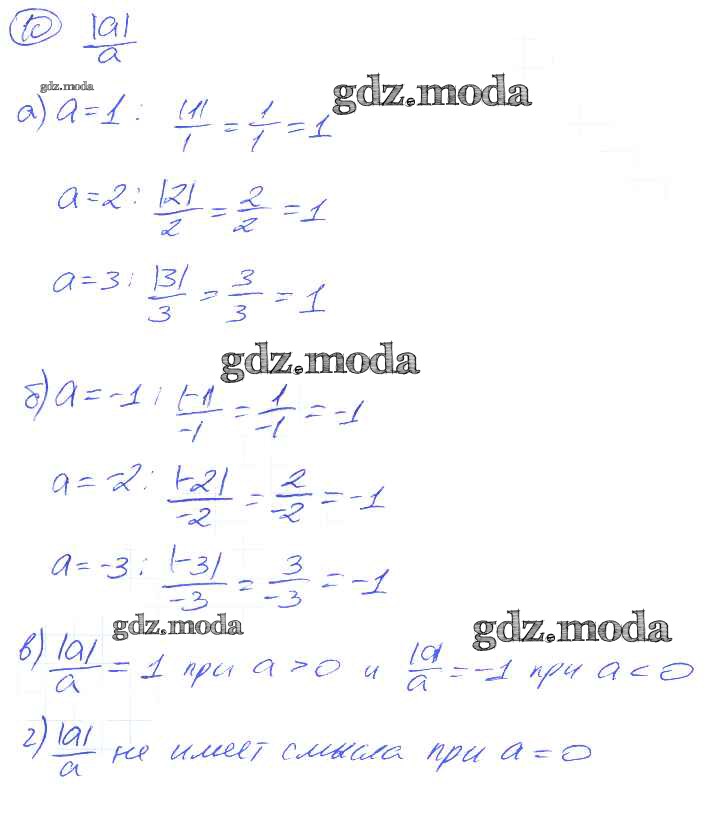 10 |a|/a
gdz.moda
gdz.moda
а) a = 1 : |1|/1 = 1/1 = 1
a = 2 : |2|/2 = 2/2 = 1
a = 3 : |3|/3 = 3/3 = 1
gdz.moda
б) a = -1 : |-1|/-1 = 1/-1 = -1
a = -2 : |-2|/-2 = 2/-2 = -1
a = -3 : |-3|/-3 = 3/-3 = -1
gdz.moda
gdz.moda
в) |a|/a = 1 при a > 0 и |a|/a = -1 при a < 0
г) |a|/a не имеет смысла при a = 0